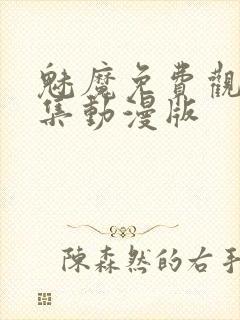 魅魔免費觀
集動漫版
陳森然的右手